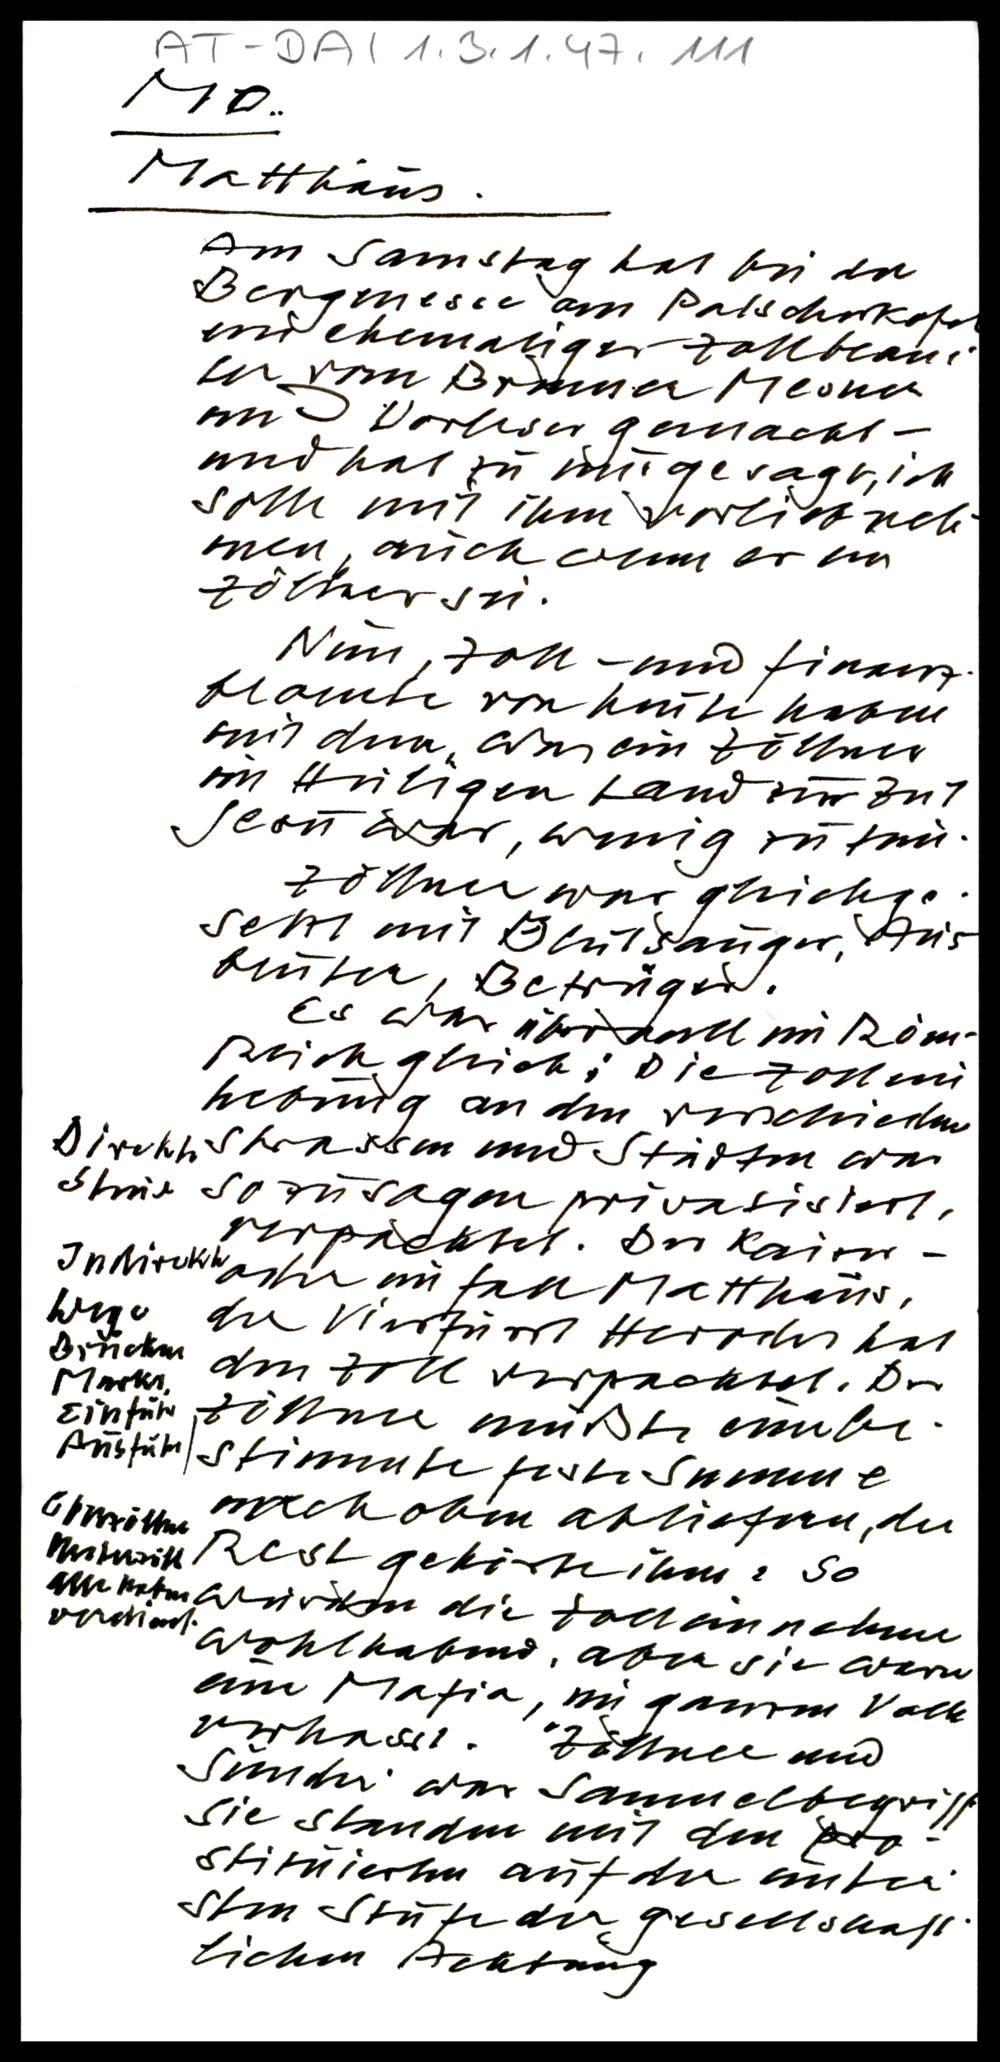 AT-DAI 1.3.1.47.111
MD..
Matthäus.
Am Samstag hat bei der
Bergmesse am Patscherkofel
ein ehemaliger Zollbeam
ter vom Brenner Mesner
und Vorleser gemacht -
und hat zu mir gesagt, ich
solle mit ihm vorlieb neh
men, auch wenn er ein
Zöllner sei.
Nun, Zoll - und Finanz-
beamte von heute haben
mit dem, was ein Zöllner
im Heiligen Land zur Zeit
Jesu war, wenig zu tun.
Zöllner war gleichge-
setzt mit Blutsauger, Aus
beuter, Betrüger.
Es war überall im Röm-
Reich gleich: Die Zollein
hebung an den verschiedenen
Strassen und Städten war
sozusagen privatisiert,
verpachtet. Der Kaiser -
oder im Fall Matthäus,
der Vierfürst Herodes hat
den Zoll verpachtet. Der
Zöllner mußte eine be-
stimmte feste Summe
nach oben abliefern, der
Rest gehörte ihm: So
wurden die Zolleinnehmer
wohlhabend, aber sie waren
eine Mafia, im ganzen Volk
verhasst. "Zöllner und
Sünder" war Sammelbegriff
Sie standen mit den Pro-
stituierten auf der unter
sten Stufe der gesellschaft-
lichen Achtung
Direkte
Steuer
Indirekte
Wege
Brücken
Markt,
Einfuhr
Ausfuhr
Oberzöllner
alle haben
verdient.